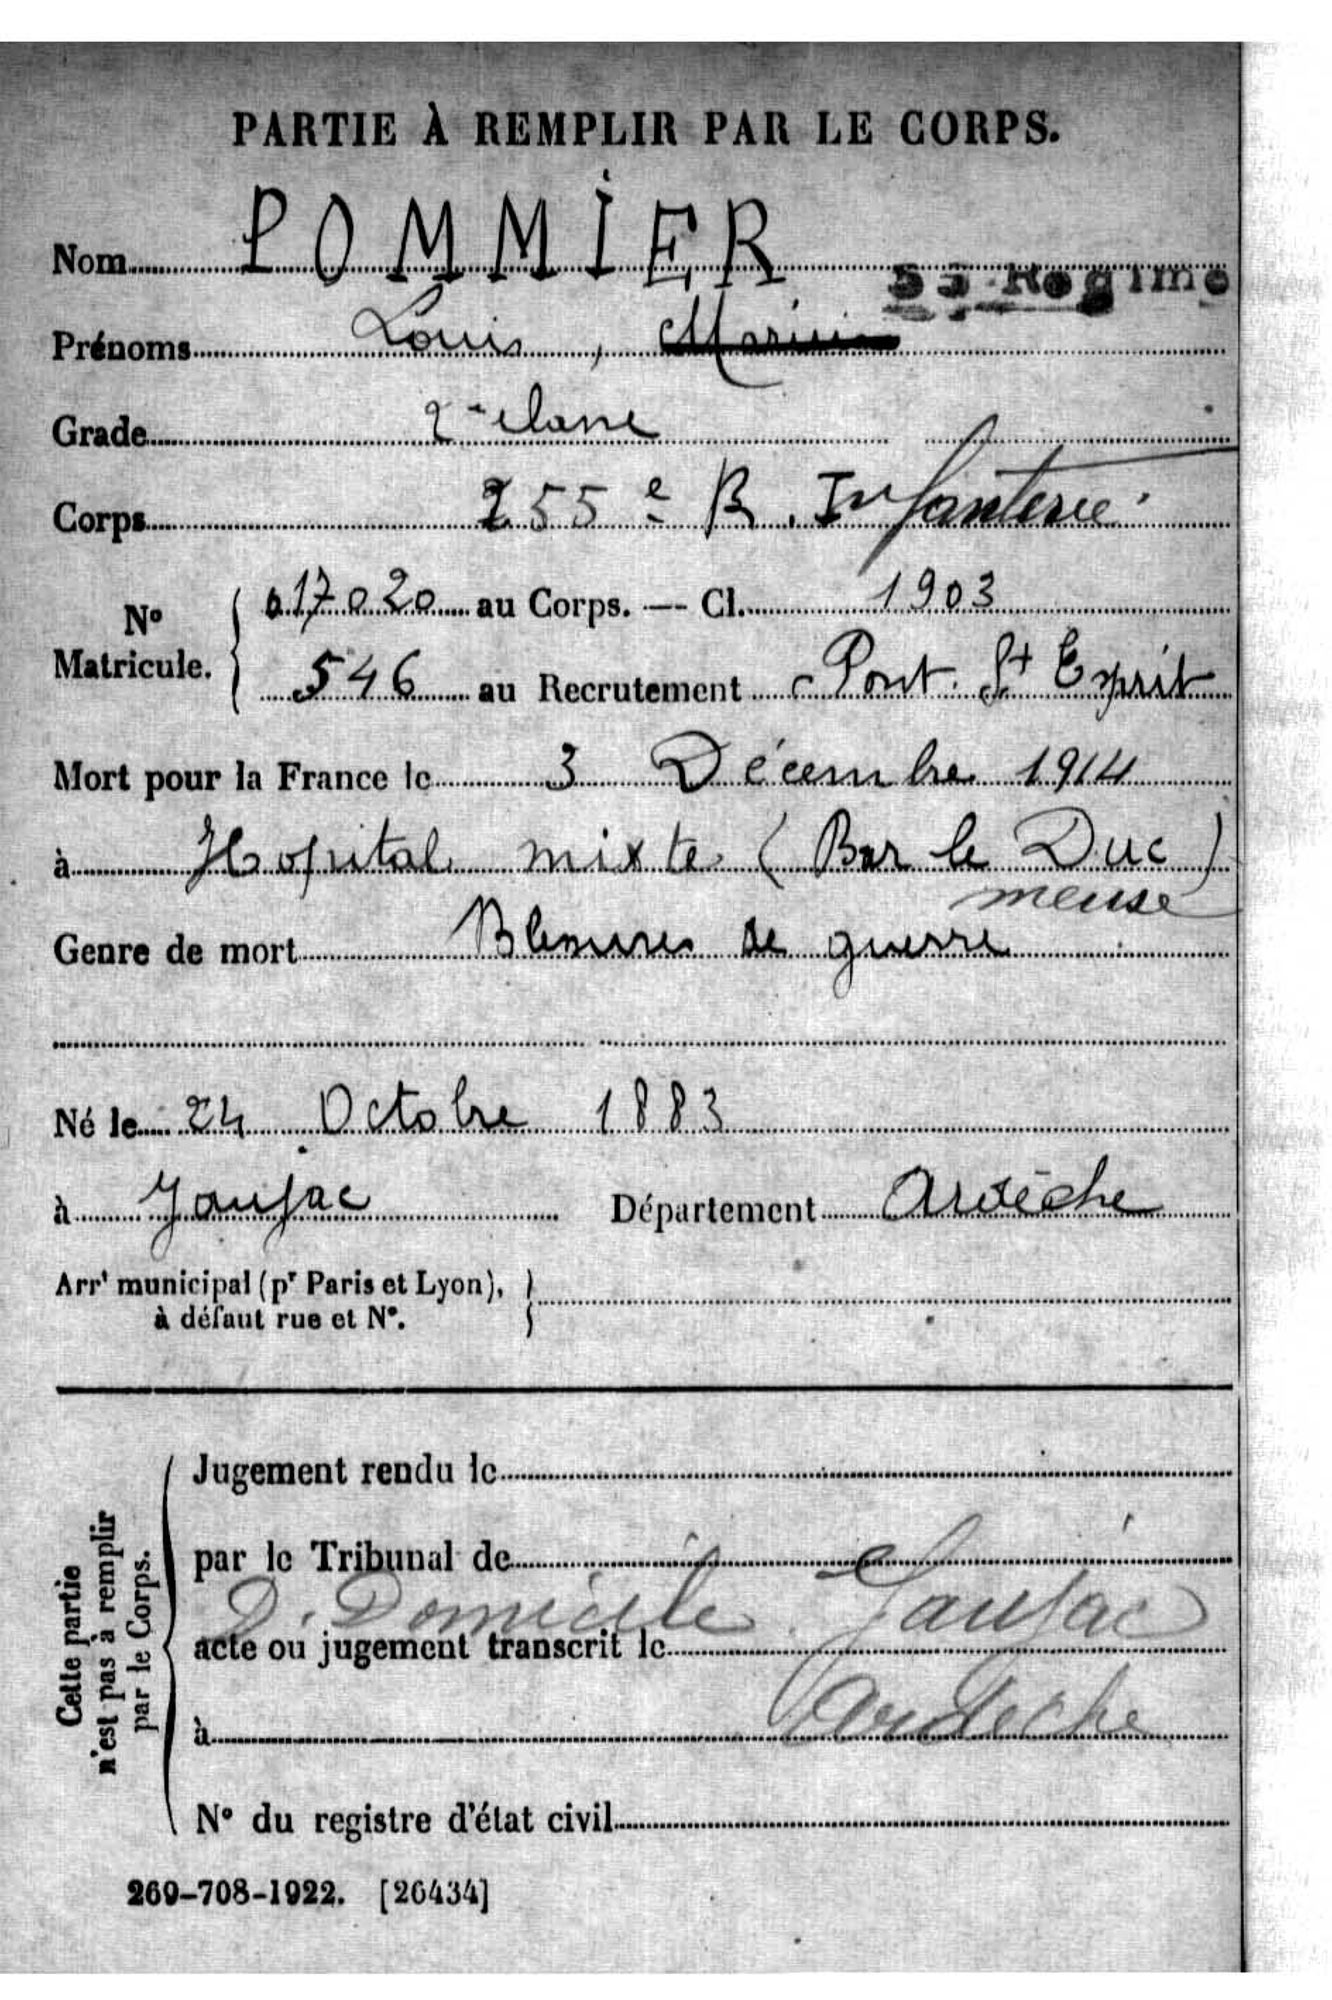 PARTIE À REMPLIR PAR LE CORPS.
Nom POMMIER
55 Regime
Prénoms Louis, Marius
Grade 2e classe
Corps 255e R. Infanterie
No Matricule. 017020 au Corps. — Cl. 1903
546 au Recrutement Pont St Esprit
Mort pour la France le 3 Décembre 1914
à Hopital mixte (Bar le Duc)
meuse
Genre de mort Blessures de guerre
Né le 24 Octobre 1883
à Jaujac Département Ardèche
Arrt municipal (pr Paris et Lyon),
à défaut rue et N°.
Cette partie
n'est pas à remplir
par le Corps.
Jugement rendu le
par le Tribunal de
D. Domicile Jaujac
acte ou jugement transcrit le
Ardèche
à
N° du registre d'état civil
269-708-1922. [26434]